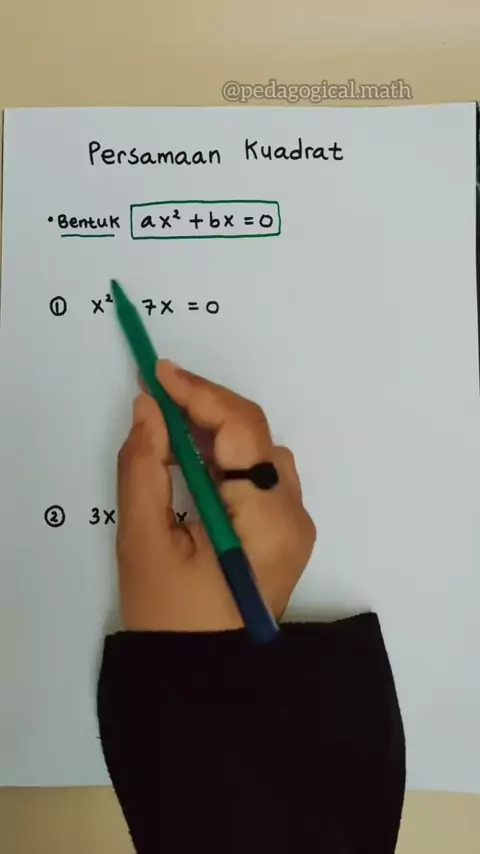 @pedagogical.math
Persamaan Kuadrat
• Bentuk ax² + bx = 0
① x² 7x = 0
② 3x x